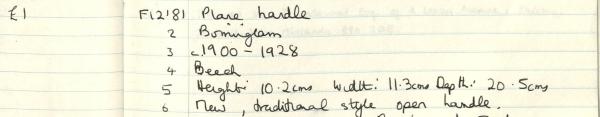 E1 F12'81 Plane handle
2 Birmingham
3 c.1900 - 1928
4 Beech
5 Height: 10.2cms Width: 11.3cms Depth: 20.5cms
6 New, traditional style open handle.